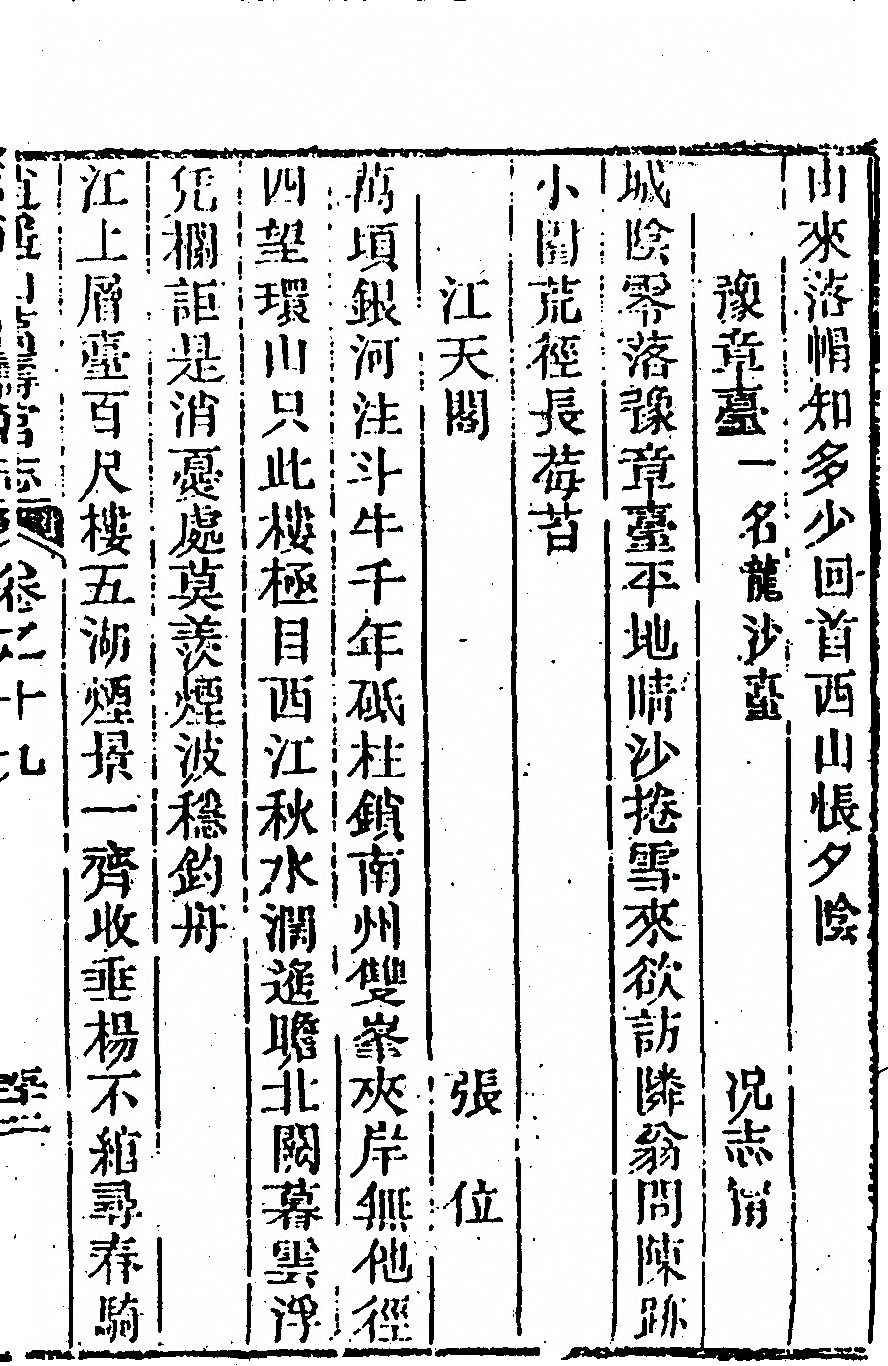 由來落帽知多少回首西山悵夕陰
豫章臺一名龍沙臺 况志甯
城陰零落豫章臺平地晴沙捲雪來欲訪隣翁問陳跡
小閣荒徑長莓苔
江天閣 張位
萬頃銀河注斗牛千年砥柱鎖南州雙峯夾岸無他徑
四望環山只此樓極目西江秋水濶遙瞻北闕暮雲浮
凭欄詎是消憂處莫羨煙波穩釣舟
江上層臺百尺樓五湖煙景一齊收垂楊不綰尋春騎
逍遙山萬壽宮志 卷之十九